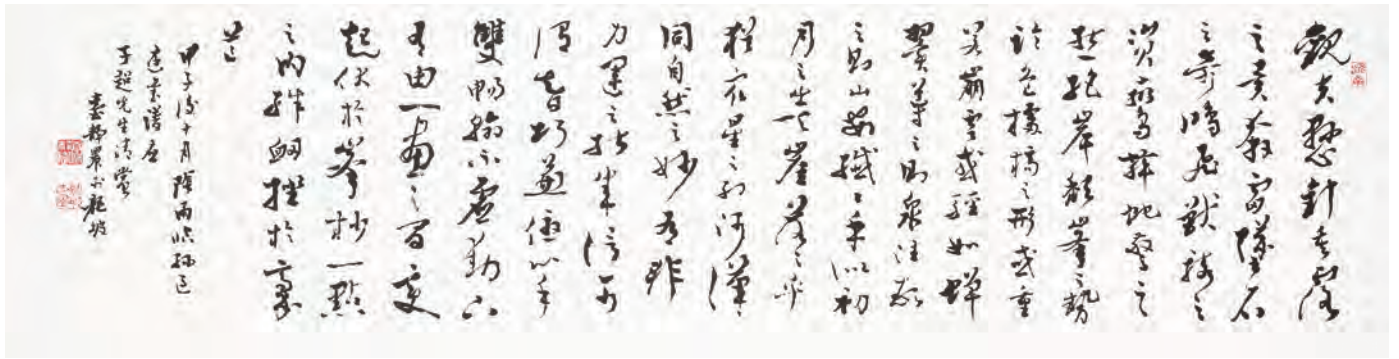 觀夫懸針垂露
之異奔雷墜石
之奇鴻飛獸駭之
資鸞舞蛇驚之
態絕岸頹峯之勢
臨危據槁之形或重
若崩雲或輕如蟬
翼導之則泉注頓
之則山安纖纖乎似初
月之出天崖落落乎
猶衆星之列河漢
同自然之妙有非
力運之能成信可
謂智巧兼優心手
雙暢翰不虛動下
有由一畫之間變
起伏於峯杪一點
之內殊衄挫於豪
芒
甲子後十月陰雨臨孫過
庭書譜應
子超先生清賞
臺靜農於龍坡